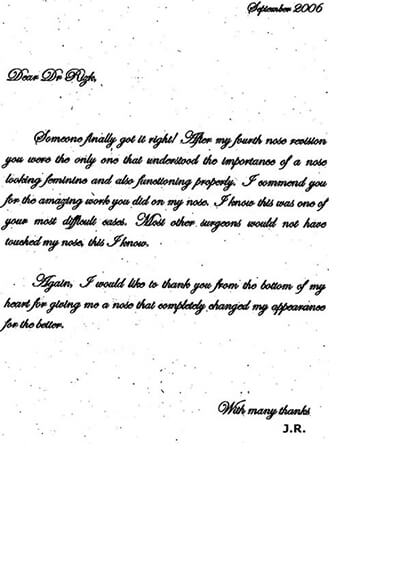 September 2006
Dear Dr Rizk,
Someone finally got it right! After my fourth nose revision
you were the only one that understood the importance of a nose
looking feminine and also functioning properly. I commend you
for the amazing work you did on my nose. I know this was one of
your most difficult cases. Most other surgeons would not have
touched my nose, this I know.
Again, I would like to thank you from the bottom of my
heart for giving me a nose that completely changed my appearance
for the better.
With many thanks
J.R.